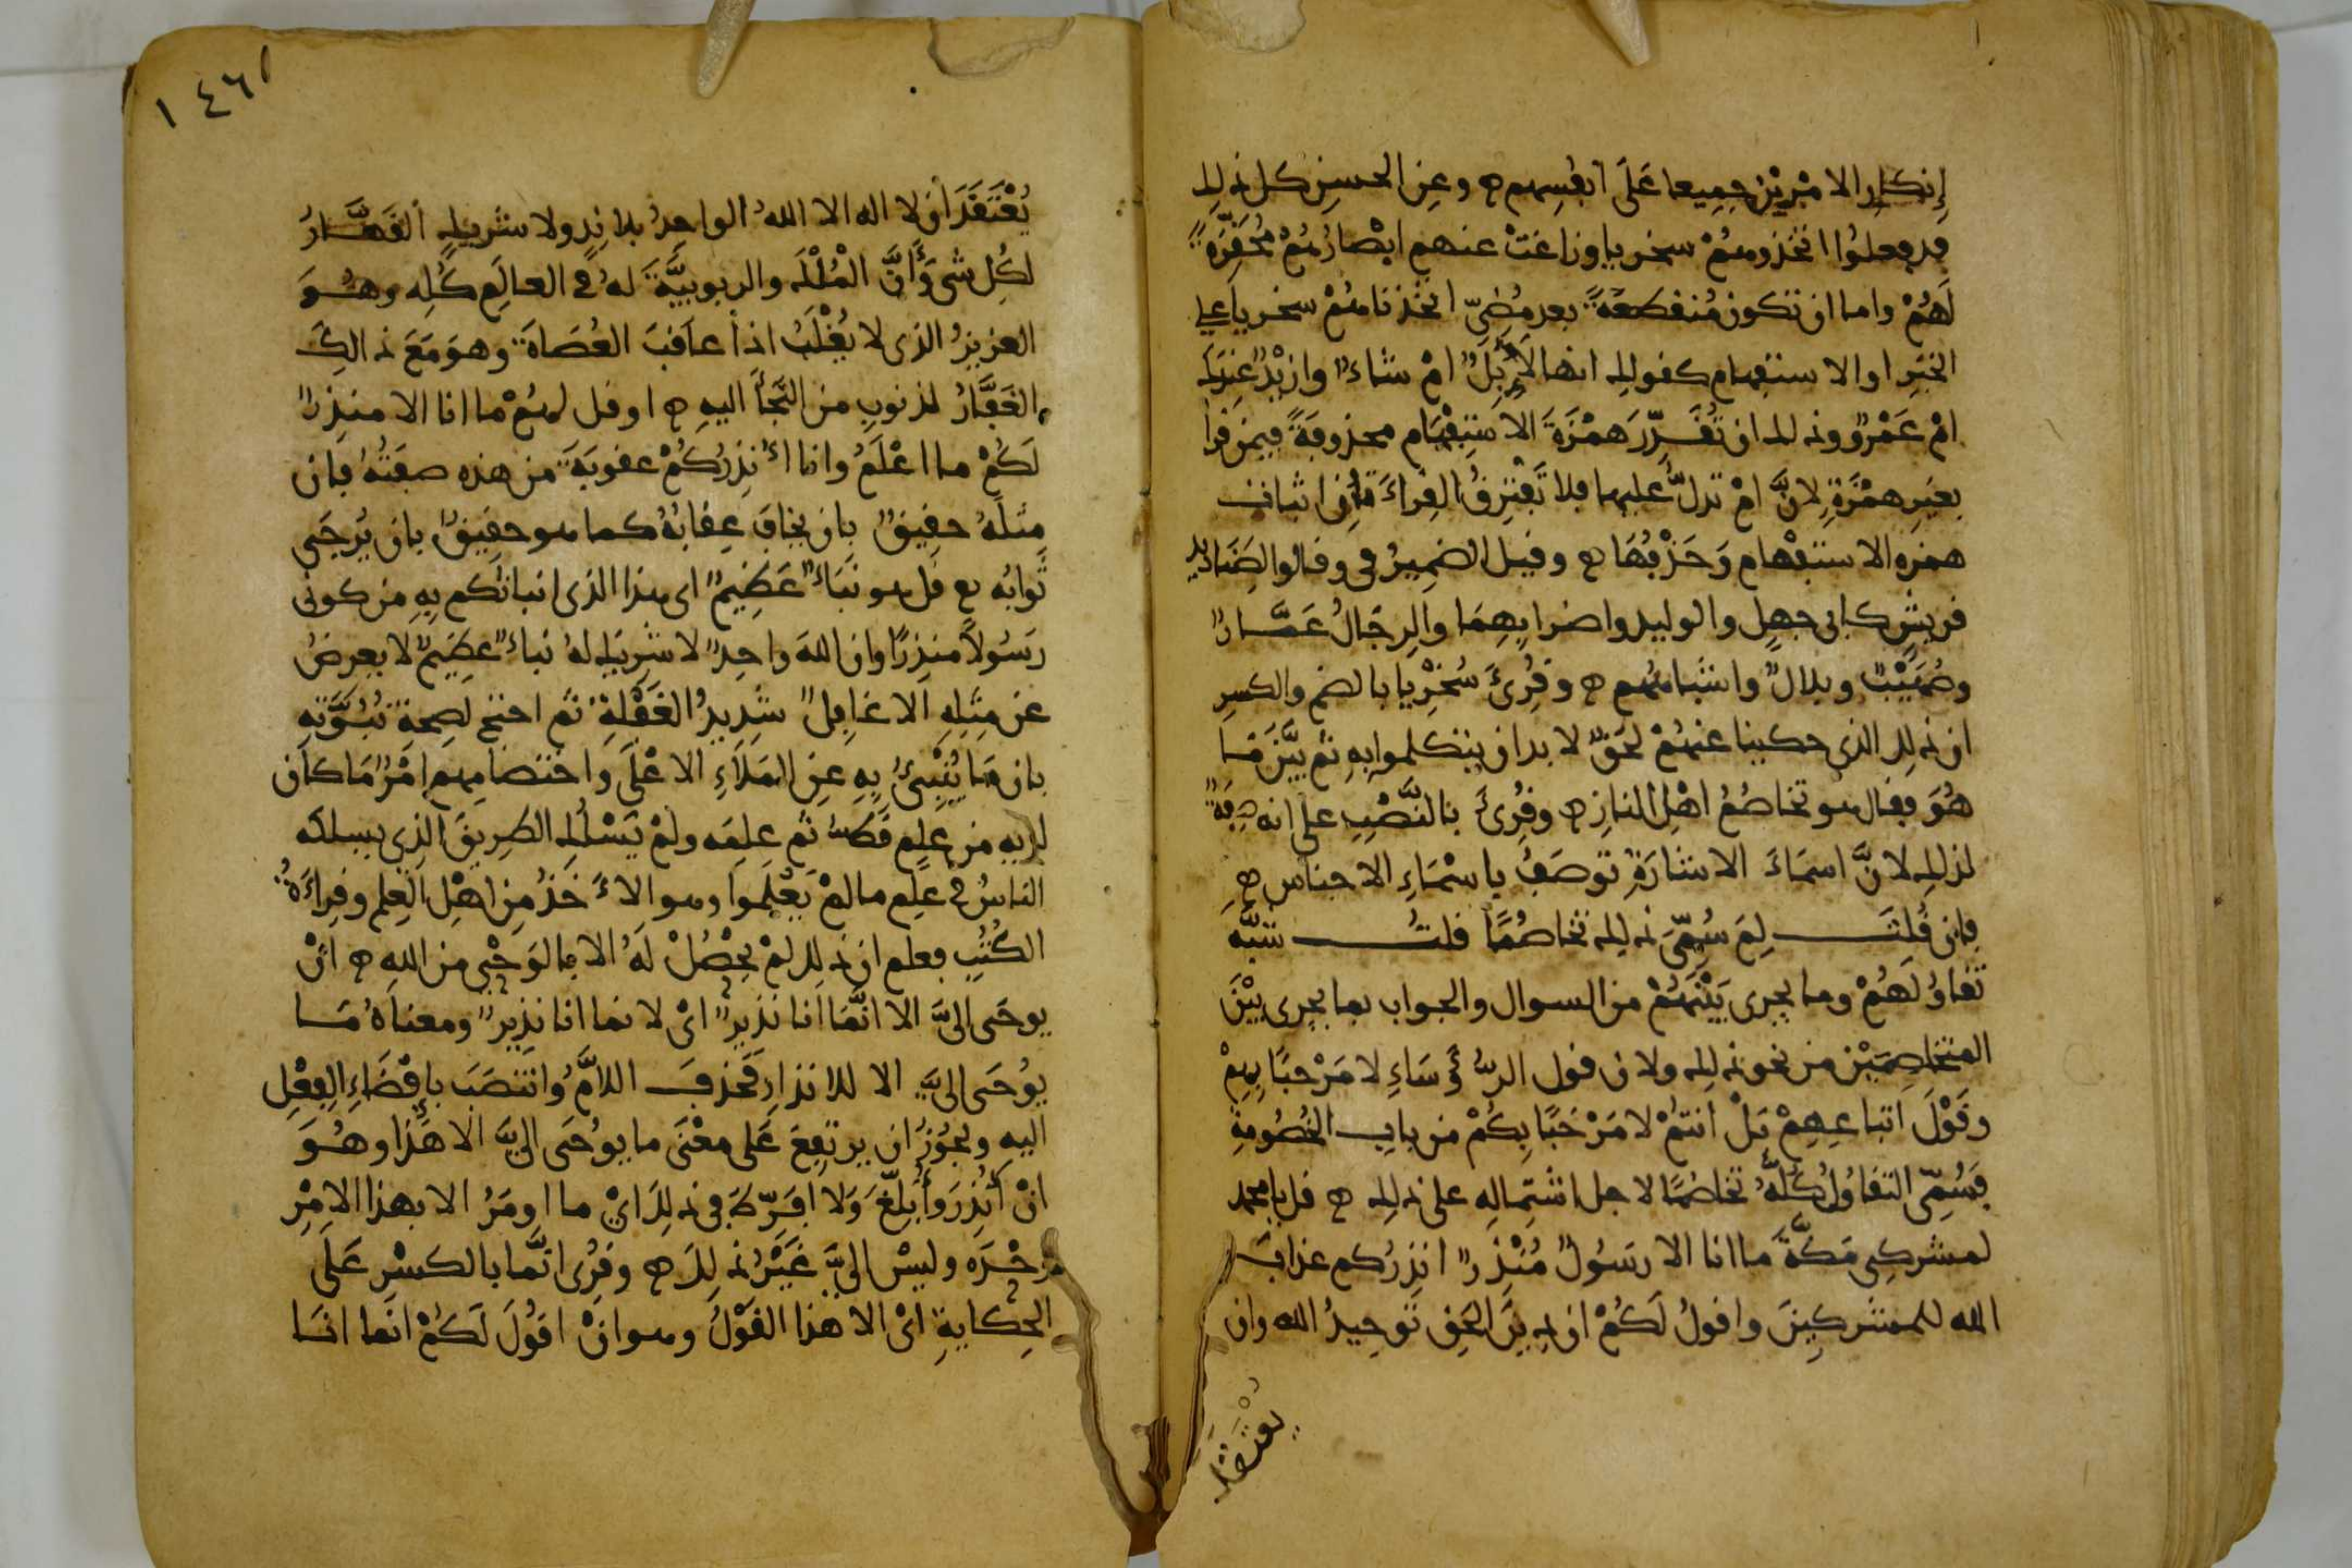 إنكار الامرين جميعا على انفسهم ۞ وعن الحسن كل ذلك
قد فعلوا اتخذوهم سخريا وزاغت عنهم ابصارهم محقرة
لهم واما ان تكون منقطعة بعد مضي اتخذناهم سخريا على
الخبر او الاستفهام كقولك انها لابل ام شاء وازيد عندك
ام عمرو وذلك ان تقدر همزة الاستفهام محذوفة فيمن قرا
بغير همزة لان ام تدل عليها فلا تفترق القراءة في اثبات
همزه الاستفهام وحذفها ۞ وقيل الضمير في وقالوا لصناديد
قريش كابي جهل والوليد واضرابهما والرجال عمار
وصهيب وبلال واشباههم ۞ وقرئ سخريا بالضم والكسر
ان ذلك الذي حكينا عنهم لحق لا بد ان يتكلموا به ثم بين ما
هو فقال هو تخاصم اهل النار ۞ وقرئ بالنصب على انه صفة
لذلك لان اسماء الاشارة توصف باسماء الاجناس ۞
فان قلت لم سمي ذلك تخاصما قلت شبه
تقاولهم وما يجري بينهم من السوال والجواب بما يجري بين
المتخاصمين من نحو ذلك ولان قول الرؤساء لا مرحبا بهم
وقول اتباعهم بل انتم لا مرحبا بكم من باب الخصومة
فسمي التقاول كله تخاصما لاجل اشتماله على ذلك ۞ قل يا محمد
لمشركي مكة ما انا الا رسول منذر انذركم عذاب
الله للمشركين واقول لكم ان دين الحق توحيد الله وان
يعتقد
١٤٦
يعتقد ان لا اله الا الله الواحد بلا ند ولا شريك القهار
لكل شي وأن الملك والربوبية له في العالم كله وهو
العزيز الذي لا يغلب اذا عاقب العصاة وهو مع ذالك
الغفار لذنوب من التجأ اليه ۞ او قل لهم ما انا الا منذر
لكم ما اعلم وانا أنذركم عقوبة من هذه صفته فان
مثله حقيق بان يخاف عقابه كما هو حقيق بان يرجى
ثوابه ۞ قل هو نباء عظيم اى هذا الذي انباتكم به من كوني
رسولا منذرا وان الله واحد لا شريك له نباء عظيم لا يعرض
عن مثله الا غافل شديد الغفلة ثم احتج لصحة نبوته
بان ما ينبئ به عن الملاء الاعلى واختصامهم امر ما كان
له به من علم قط ثم علمه ولم يسلك الطريق الذي يسلكه
الناس في علم ما لم يعلموا وهو الاءخذ من اهل العلم وقراءة
الكتب فعلم ان ذلك لم يحصل له الا بالوحي من الله ۞ ان
يوحى الي الا انما انا نذير اى لانما انا نذير ومعناه ما
يوحى الي الا للانذار فحذف اللام وانتصب بإفضاء الفعل
اليه ويجوز ان يرتفع على معنى ما يوحى الي الا هذا وهو
ان أنذر وأبلغ ولا افرط في ذلك اي ما اومر الا بهذا الامر
وحده وليس الي غير ذلك ۞ وقرئ انما بالكسر على
الحكاية اى الا هذا القول وهو ان اقول لكم انما انا